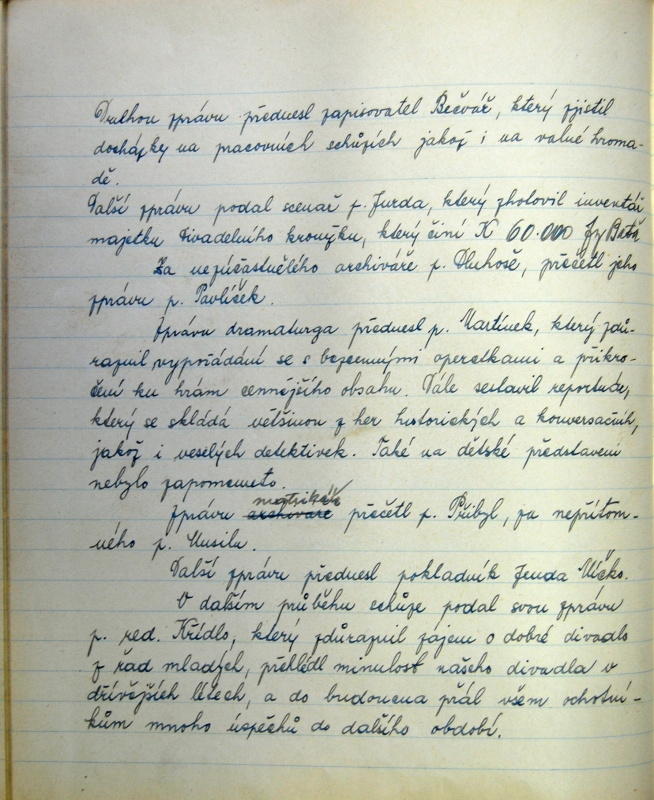 Druhou zprávu přednesl zapisovatel Bečvář, který zjistil
docházky na pracovních schůzích jakož i na valné hroma-
dě.
Další zprávu podal scenař p. Jurda, který zhotovil inventář
majetku divadelního kroužku, který činí K 60.000
Za nezúčastnělého archiváře p. Dluhoše, přečetl jeho
zprávu p. Pavlíček.
Zprávu dramaturga přednesl p. Martínek, který zdů-
raznil vypořádání se s bezcennými operetkami a přikro-
čení ku hrám cennějšího obsahu. Dále sestavil reportuár,
který se skládá většinou z her historických a konversačních,
jakož i veselých detektivek. Také na dětské představení
nebylo zapomenuto.
matrikáře
Zprávu archiváře přečetl p. Přibyl, za nepřítom-
ného p. Musila.
Další zprávu přednesl pokladník Jenda Mičko.
V dalším průběhu schůze podal svou zprávu
p. red. Křídlo, který zdůraznil zájem o dobré divadlo
z řad mladých, přehlédl minulost našeho divadla v
dřívějších létech, a do budoucna přál všem ochotní-
kům mnoho úspěchů do dalšího období.